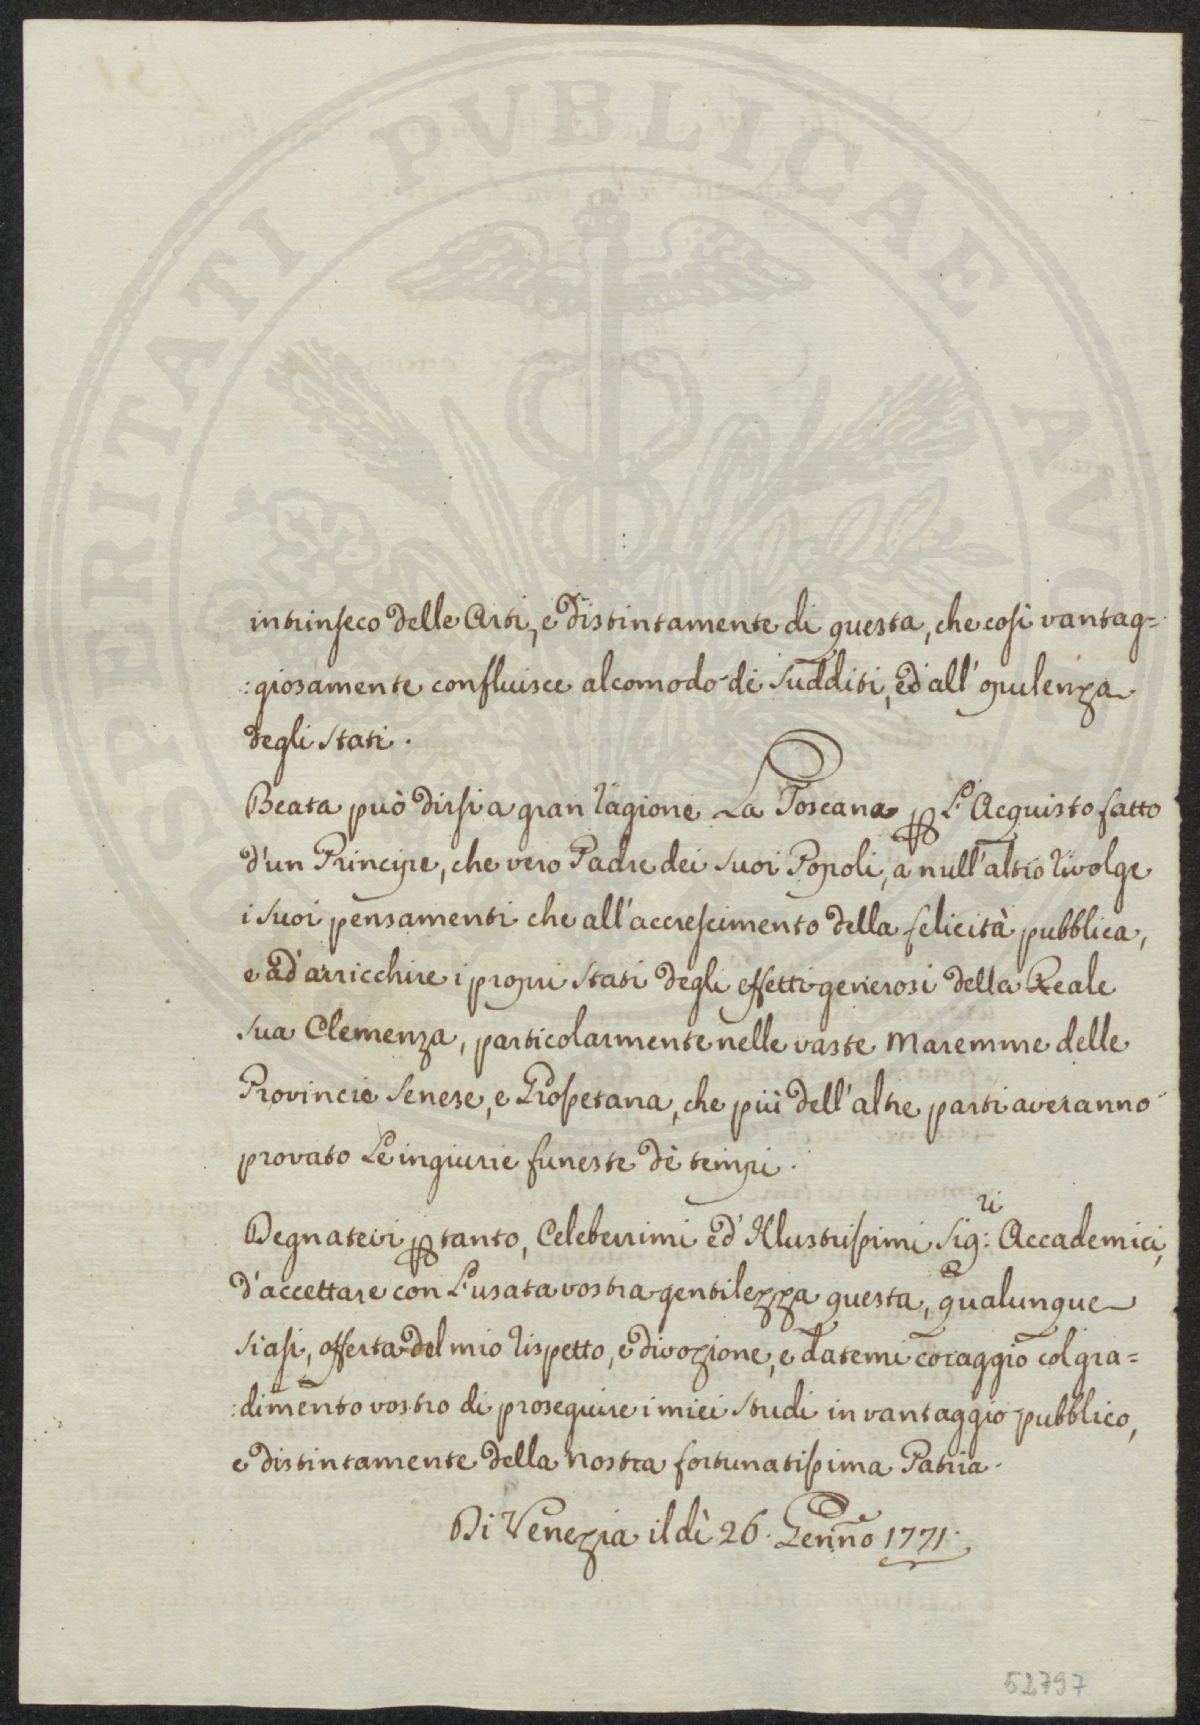 PROSPERITATI PVBLICAE AVGENDAE
intrinseco delle Arti, e distintamente di questa, che così vantag=
:giosamente confluisce al comodo de' sudditi, ed all' opulenza
degli stati.
Beata può dirsi a gran ragione La Toscana p L' Acquisto fatto
d'un Principe, che vero Padre dei suoi Popoli, a null' altro rivolge
i suoi pensamenti che all' accrescimento della felicità pubblica,
e ad' arricchire i propri stati degli effetti generosi della Reale
sua Clemenza, particolarmente nelle vaste Maremme delle
Provincie Senese, e Grossetana, che più dell' altre parti averanno
provato Le ingiurie funeste de' tempi.
Degnatevi p tanto, Celeberrimi ed' Illustrissimi Sig:ri Accademici,
d'accettare con L' usata vostra gentilezza questa, qualunque
siasi, offerta del mio rispetto, e divozione, e datemi coraggio col gra=
:dimento vostro di proseguire i miei studi in vantaggio pubblico,
e distintamente della nostra fortunatissima Patria.
Di Venezia il dì 26. Genno 1771.
52797